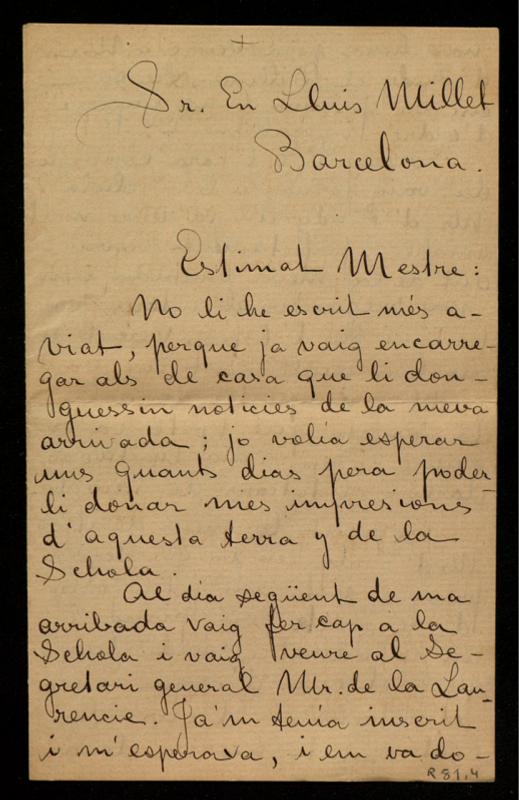 Sr. En Lluis Millet
Barcelona.
Estimat Mestre:
No li he escrit més a-
viat, perque ja vaig encarre-
gar als de casa que li don-
guessin noticies de la meva
arrivada; jo volía esperar
uns quants dias pera poder-
li donar mes impresions
d'aquesta terra y de la
Schola.
Al dia següent de ma
arribada vaig fer cap a la
Schola i vaig veure al Se-
gretari general Mr. de la Lau-
rencie. Ja'm tenía inscrit
i m'esperava, i em va do-
R 81,4